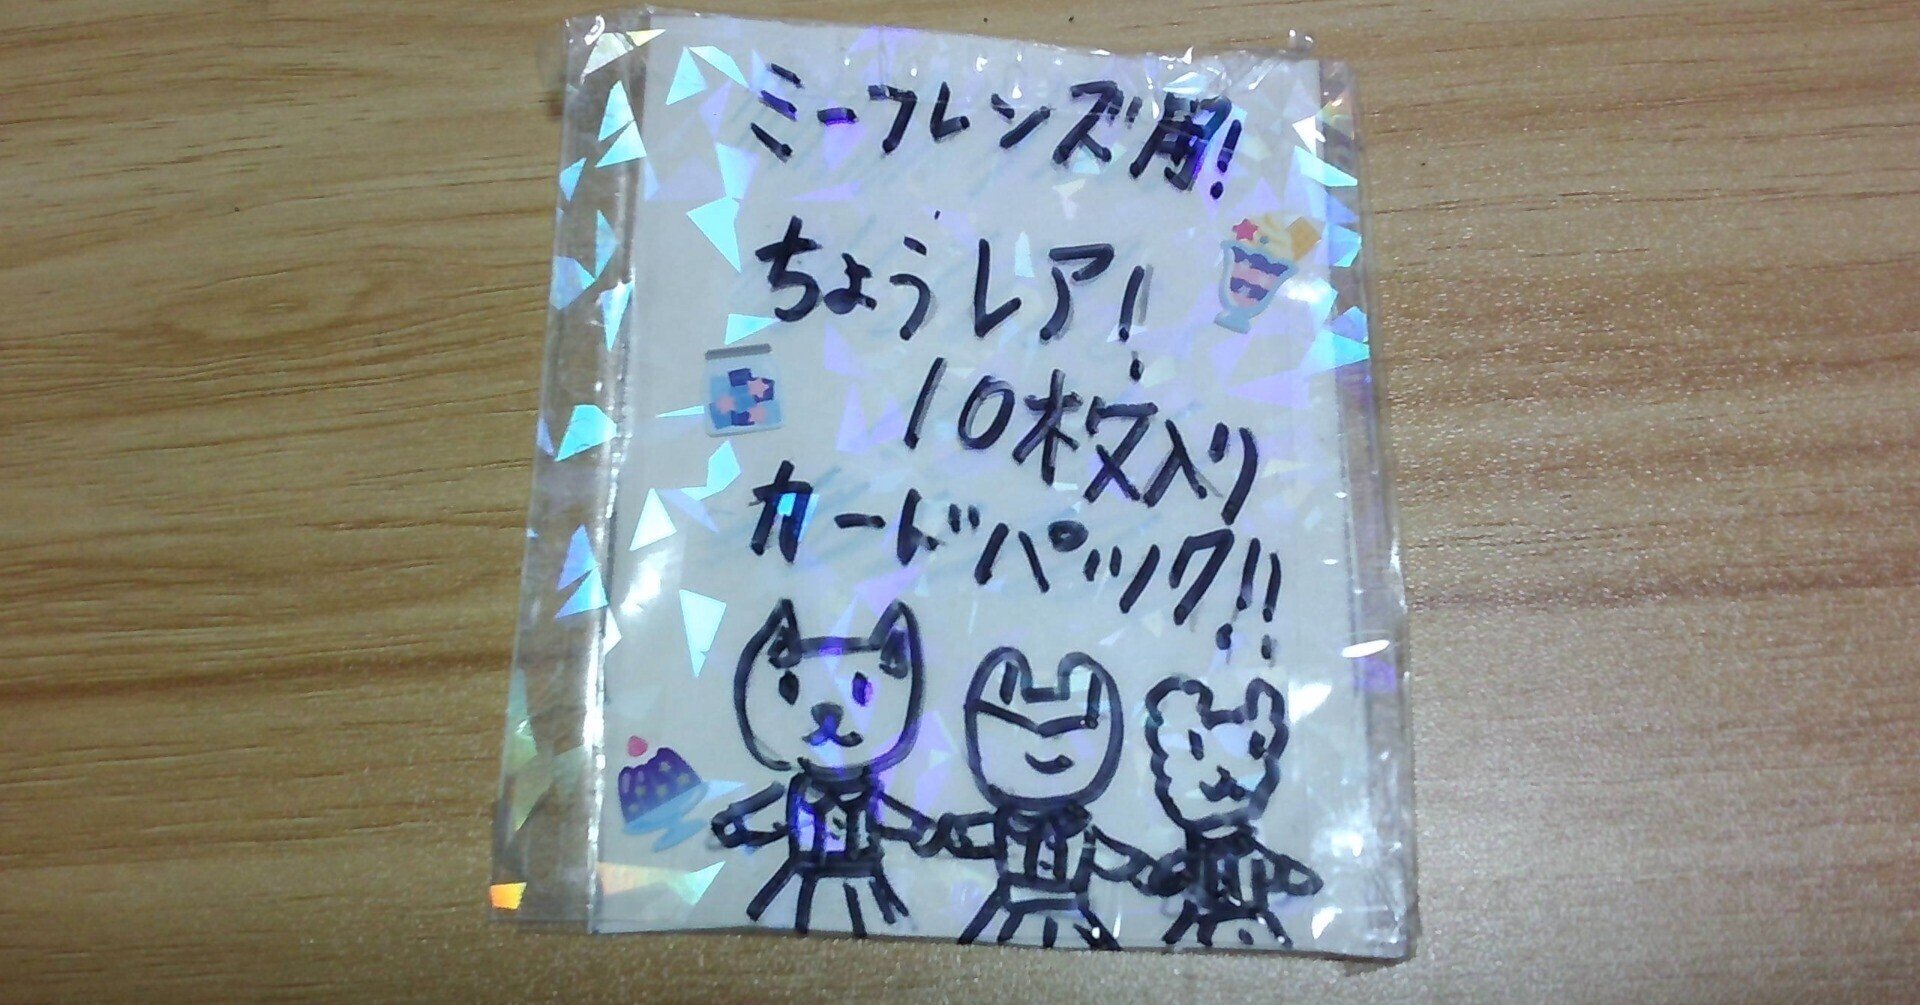 ミーフレンズ用!
ちょうレア!
10枚入り
カードパック!!